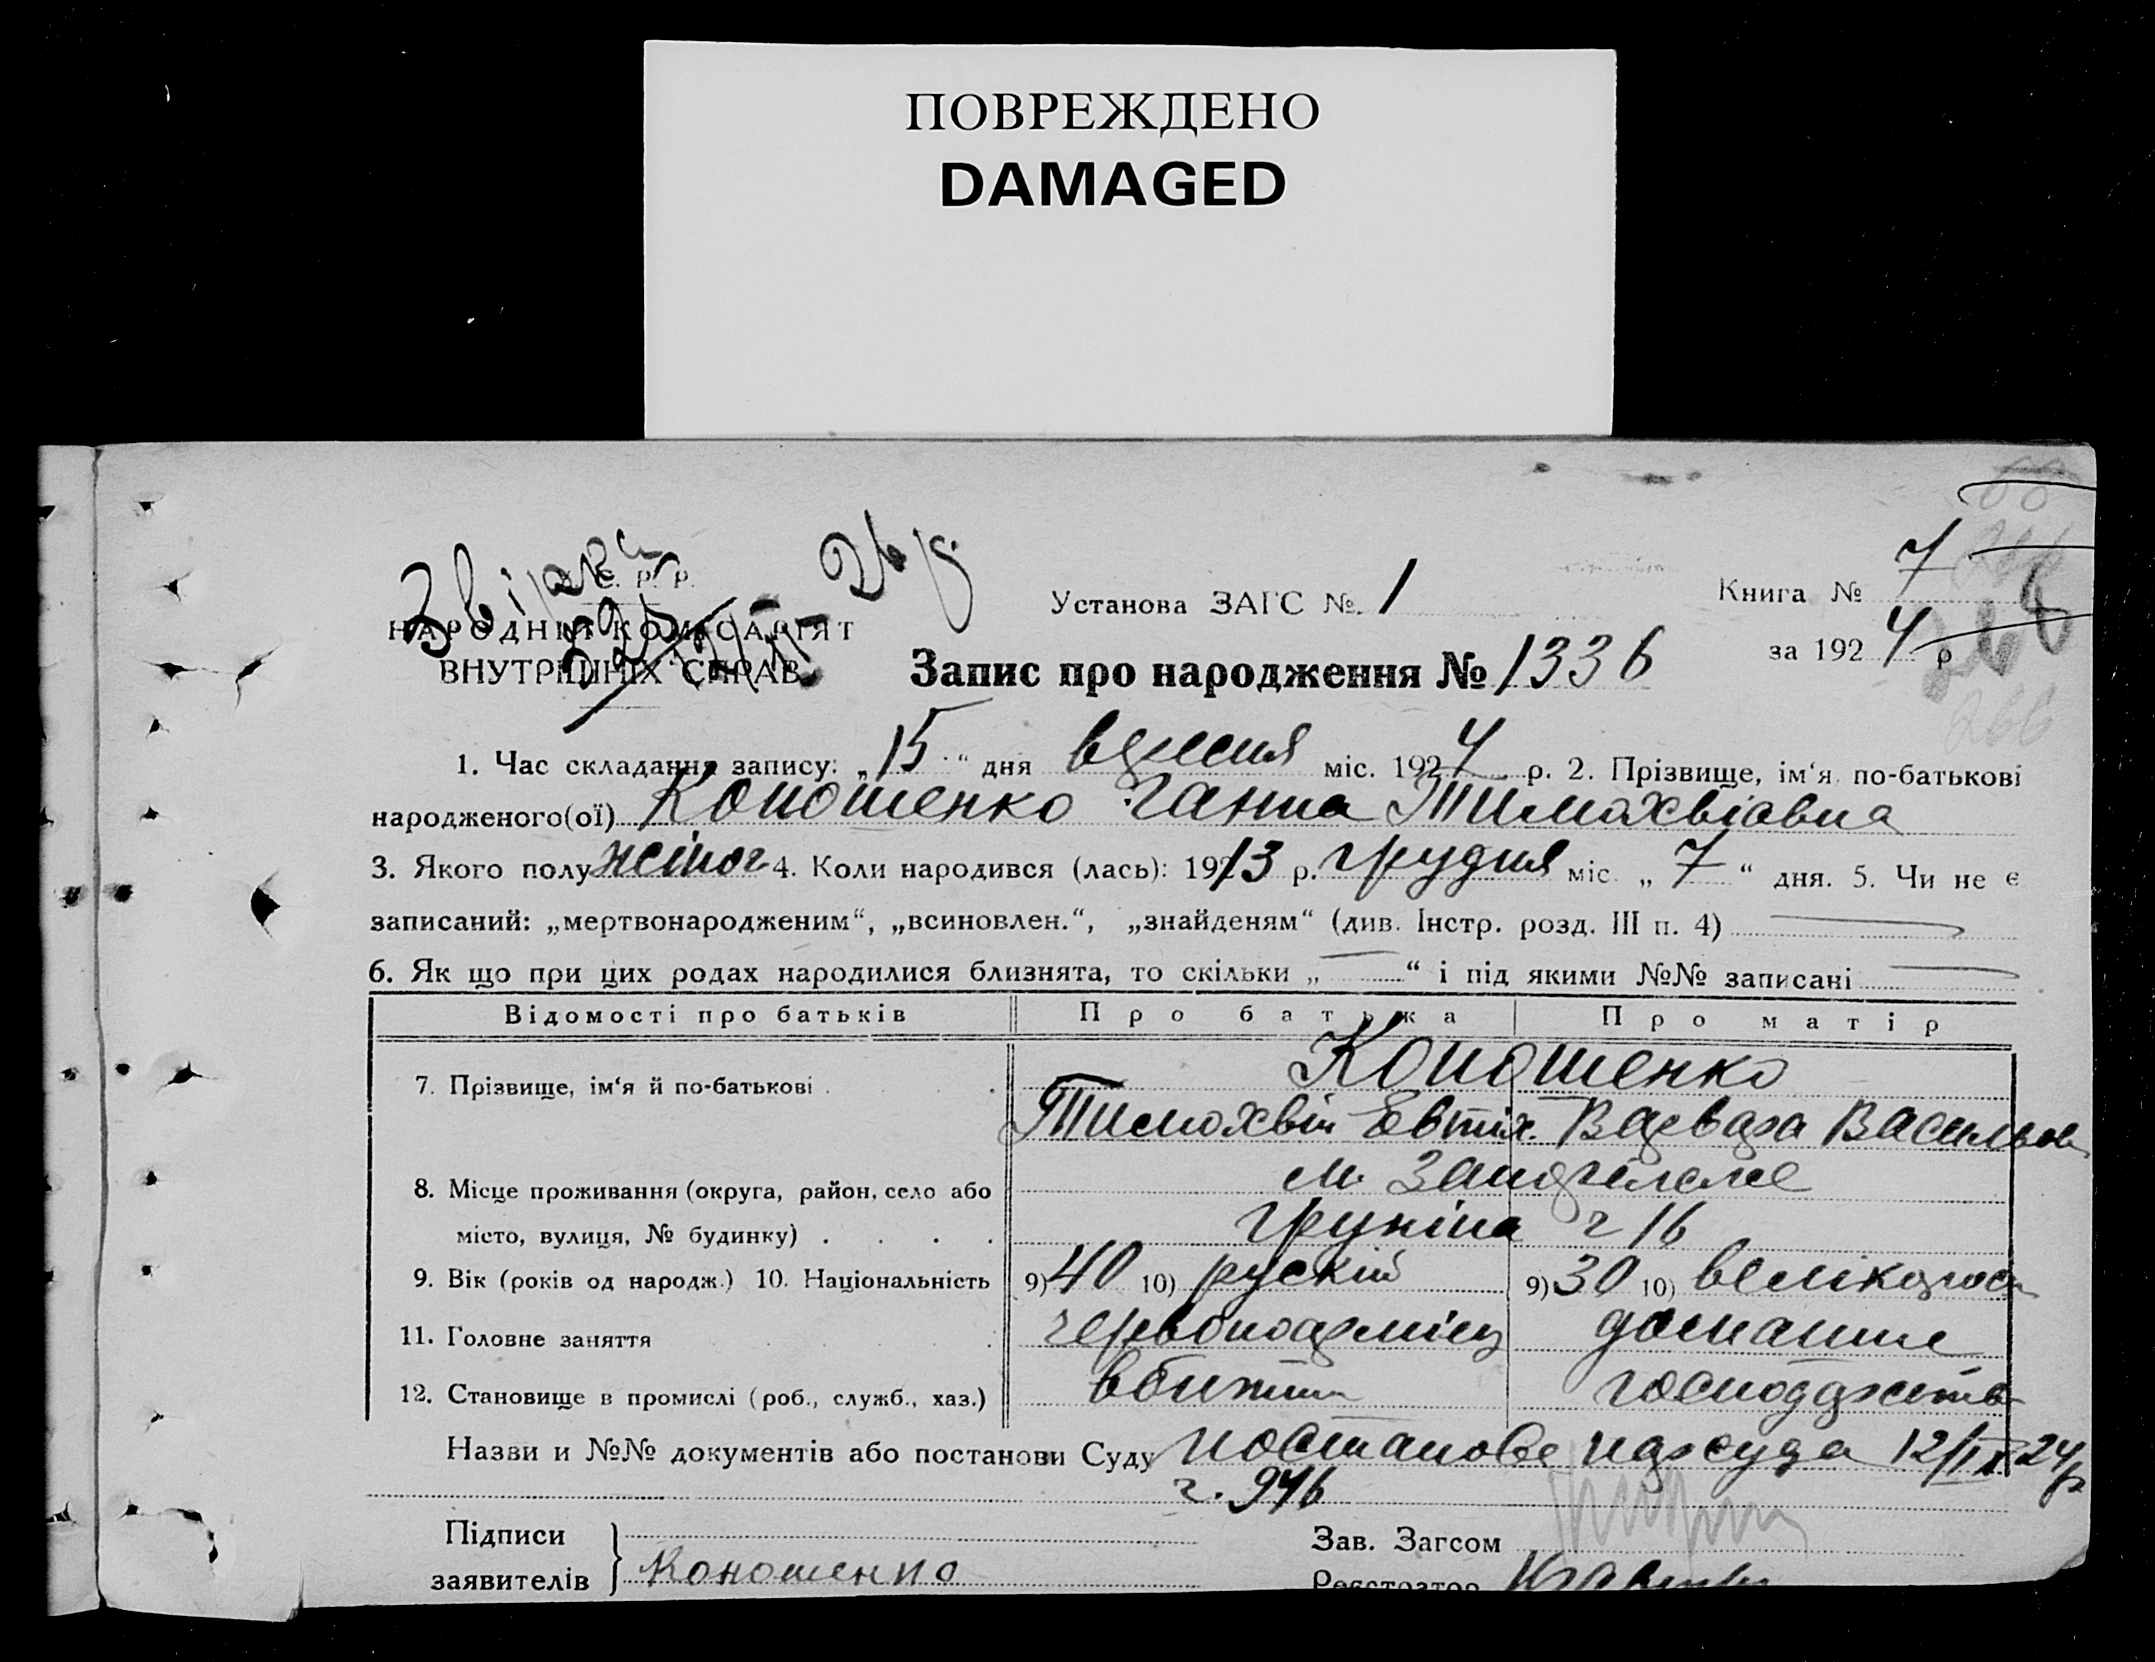 ПОВРЕЖДЕНО
DAMAGED
Книга № 7
Звірка
26 р.
С. Р. Р.
Установа ЗАГС № 1
за 1924 р
268
266
НАРОДНІЙ КОМІСАРІЯТ
ВНУТРІШНІХ СПРАВ
Запис про народження № 1336
1. Час складання запису: „15“ дня вересня міс. 1924 р. 2. Прізвище, ім‘я по-батькові
народженого(ої) Коношенко Ганна Тимохвіовна
3. Якого полу жіноч 4. Коли народився (лась): 1913 р. грудня міс. „7“ дня. 5. Чи не є
записаний: „мертвонародженим“, „всиновлен.“, „знайденям“ (див. Інстр. розд. III п. 4)
6. Як що при цих родах народилися близнята, то скільки „ “ і під якими №№ записані
Відомості про батьків Про батька Про матір
7. Прізвище, ім‘я й по-батькові Коношенко
Тимохвій Євтіх. Варвара Васильов
8. Місце проживання (округа, район, село або м. Запоріжже
місто, вулиця, № будинку) Груніна ч 16
9. Вік (років од народж.) 10. Національність 9) 40 10) рускій 9) 30 10) велікорос
11. Головне заняття червоноармієц домашне
12. Становище в промислі (роб., служб., хаз.) вбитий господарство
Назви и №№ документів або постанови Суду постанове нарсуда 12/IX 24 р
ч. 946
Підписи
заявителів Коношенко
Зав. Загсом
Реєстратор